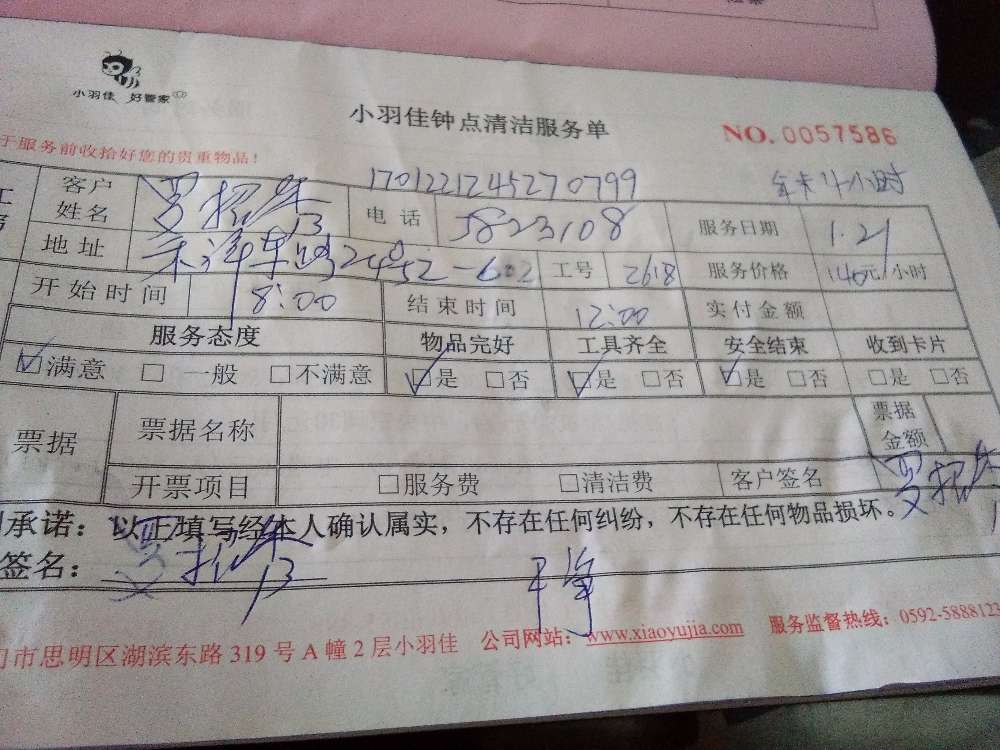 小羽佳 好管家
小羽佳钟点清洁服务单
NO.0057586
于服务前收拾好您的贵重物品！
1701221245270799
年末4小时
客户姓名
电话 5823108 服务日期 1.21
地址 2602 工号 2618 服务价格 40元/小时
开始时间 8:00 结束时间 12:00 实付金额
服务态度 物品完好 工具齐全 安全结束 收到卡片
☑满意 □一般 □不满意 ☑是 □否 ☑是 □否 ☑是 □否 □是 □否
票据 票据名称 票据金额
开票项目 □服务费 □清洁费 客户签名
承诺：以上填写经本人确认属实，不存在任何纠纷，不存在任何物品损坏。
签名：
干净
门市思明区湖滨东路 319 号 A 幢 2 层小羽佳 公司网站：www.xiaoyujia.com 服务监督热线：0592-5888123